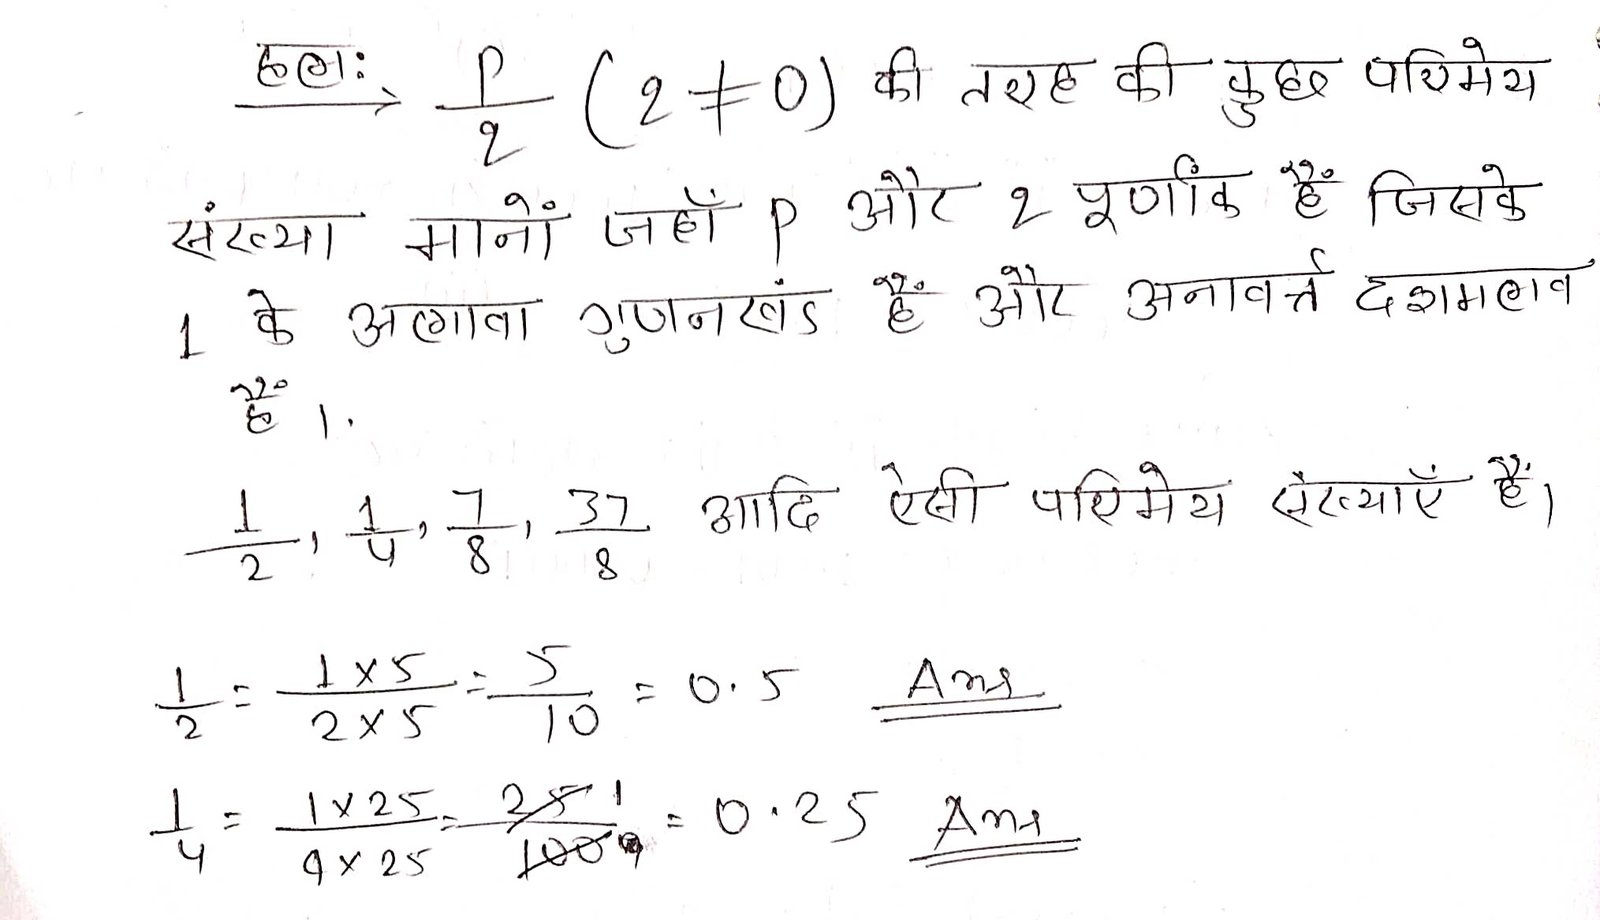 हल: p/q (q ≠ 0) की तरह की कुछ परिमेय
संख्या मानों जहाँ p और q पूर्णांक हैं जिसके
1 के अलावा गुणनखंड हैं और अनावर्त्त दशमलव
हैं।
1/2, 1/4, 7/8, 37/8 आदि ऐसी परिमेय संख्याएँ हैं।
1/2 = 1×5/2×5 = 5/10 = 0.5 Ans
1/4 = 1×25/4×25 = 25/100 = 0.25 Ans